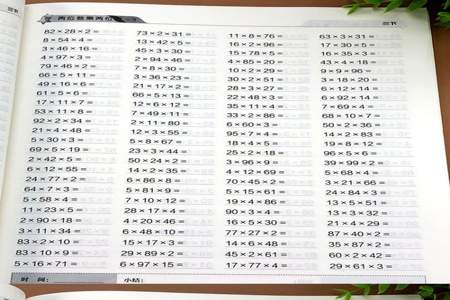 两位数乘两位
三下
82×28×2= 73×2×31= 11×8×76= 63×3×31=
8×54×4= 13×42×5= 16×2×96= 50×5×9=
3×46×16= 45×3×30= 15×78×5= 16×35×20=
4×97×3= 2×94×46= 4×85×20= 43×4×18=
79×46×2= 7×8×30= 10×2×29= 9×9×96=
66×5×11= 3×36×23= 30×2×51= 3×18×20=
49×16×6= 21×17×2= 28×3×27= 6×12×14=
61×5×6= 66×5×13= 22×48×3= 6×92×14=
17×11×7= 12×6×12= 35×11×4= 7×69×4=
53×11×8= 7×49×11= 33×2×86= 68×10×7=
92×2×34= 2×11×80= 6×60×3= 50×2×36=
21×4×48= 12×3×55= 95×7×4= 14×2×83=
5×30×3= 5×8×67= 18×4×5= 19×8×12=
69×5×19= 23×3×44= 25×2×18= 96×5×6=
2×42×5= 50×24×2= 3×96×9= 39×99×2=
6×12×55= 14×2×35= 4×12×69= 5×68×4=
24×77×2= 6×86×8= 70×45×2= 3×21×66=
64×7×3= 5×81×9= 5×15×61= 24×84×3=
5×58×4= 7×10×12= 19×4×86= 13×5×51=
11×23×5= 28×17×4= 90×3×4= 13×3×32=
2×90×18= 4×20×46= 16×5×30= 21×4×29=
3×11×34= 6×48×10= 77×27×2= 87×40×2=
83×2×10= 15×17×3= 14×6×48= 35×87×2=
83×10×9= 29×89×2= 45×2×61= 60×2×42=
5×16×71= 6×97×15= 17×77×4= 29×61×3=
时间: 小结: